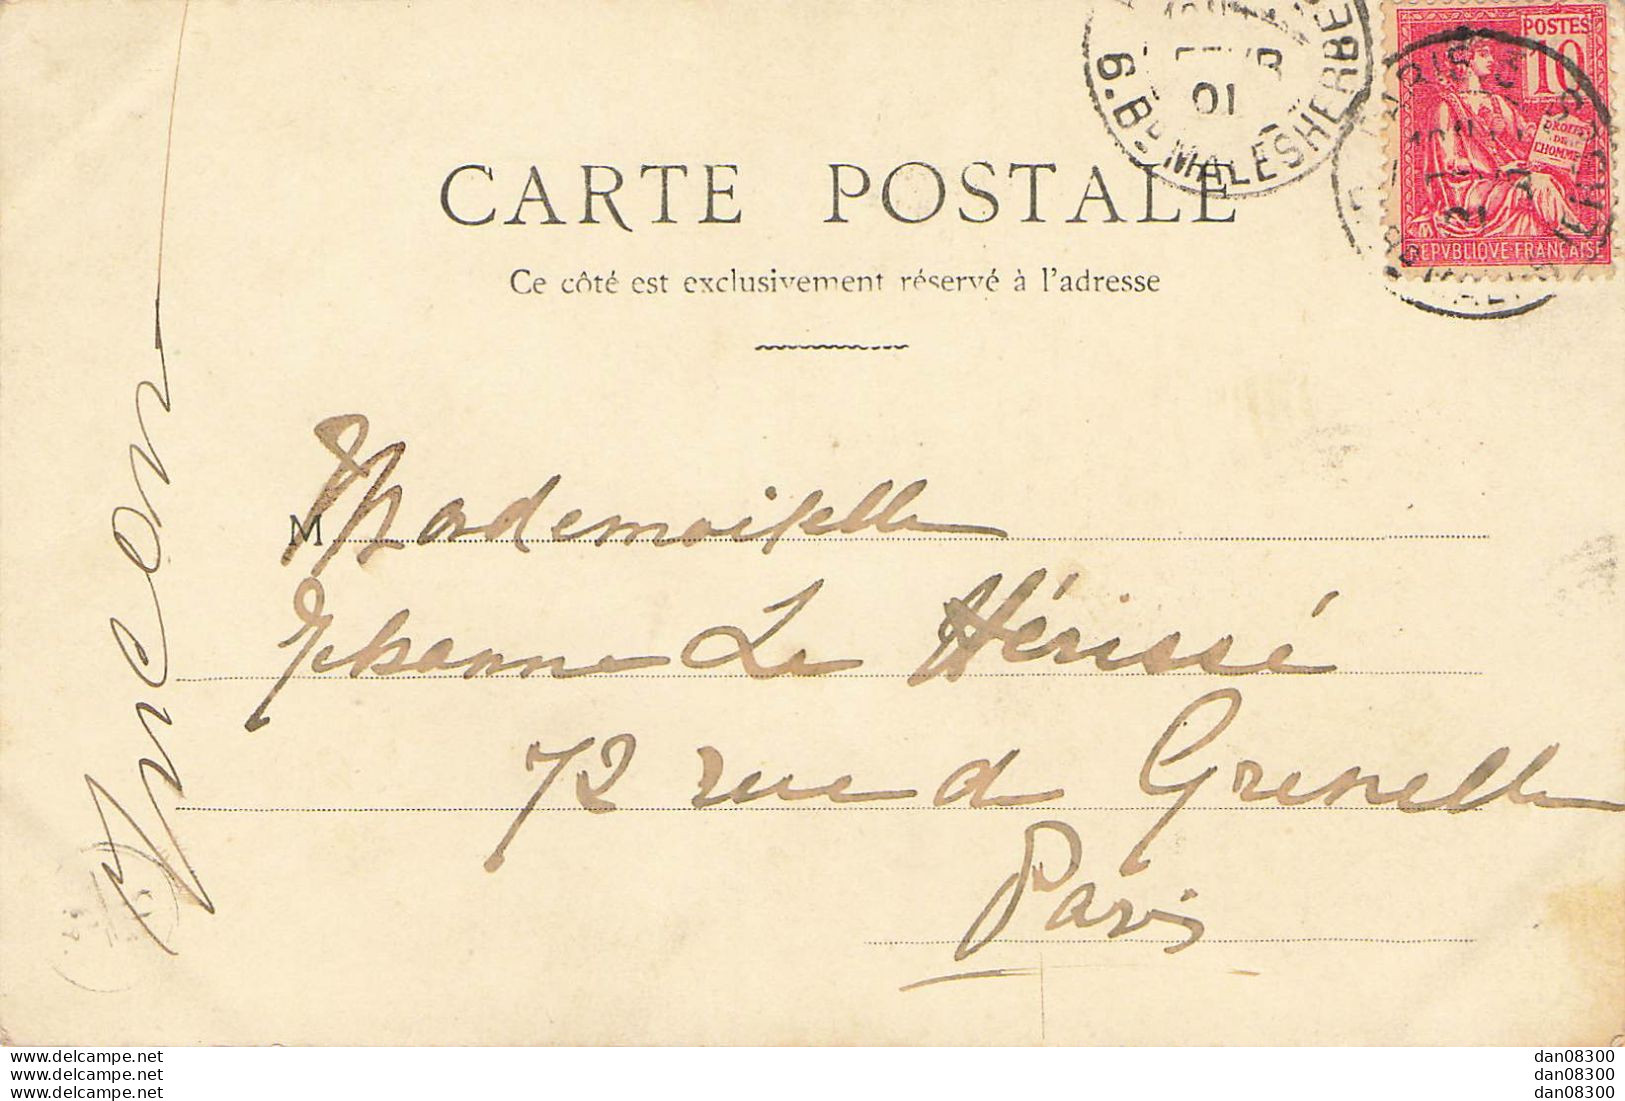 CARTE POSTALE
Ce côté est exclusivement réservé à l'adresse
POSTES
10
DROITS
DE
L'HOMME
REPVBLIQVE FRANÇAISE
01
6. BD MALESHERBES
PARIS
M Mademoiselle
Jehanne Le Hérissé
72 rue de Grenelle
Paris
www.delcampe.net
www.delcampe.net
www.delcampe.net
dan08300
dan08300
dan08300